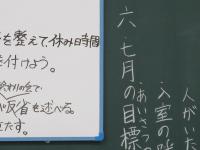 人がいた
入室の
あいさつ
六・七月の目標
を整えて休み時間
を付けよう。
終わりの会で
が反省を述べる。
たす。